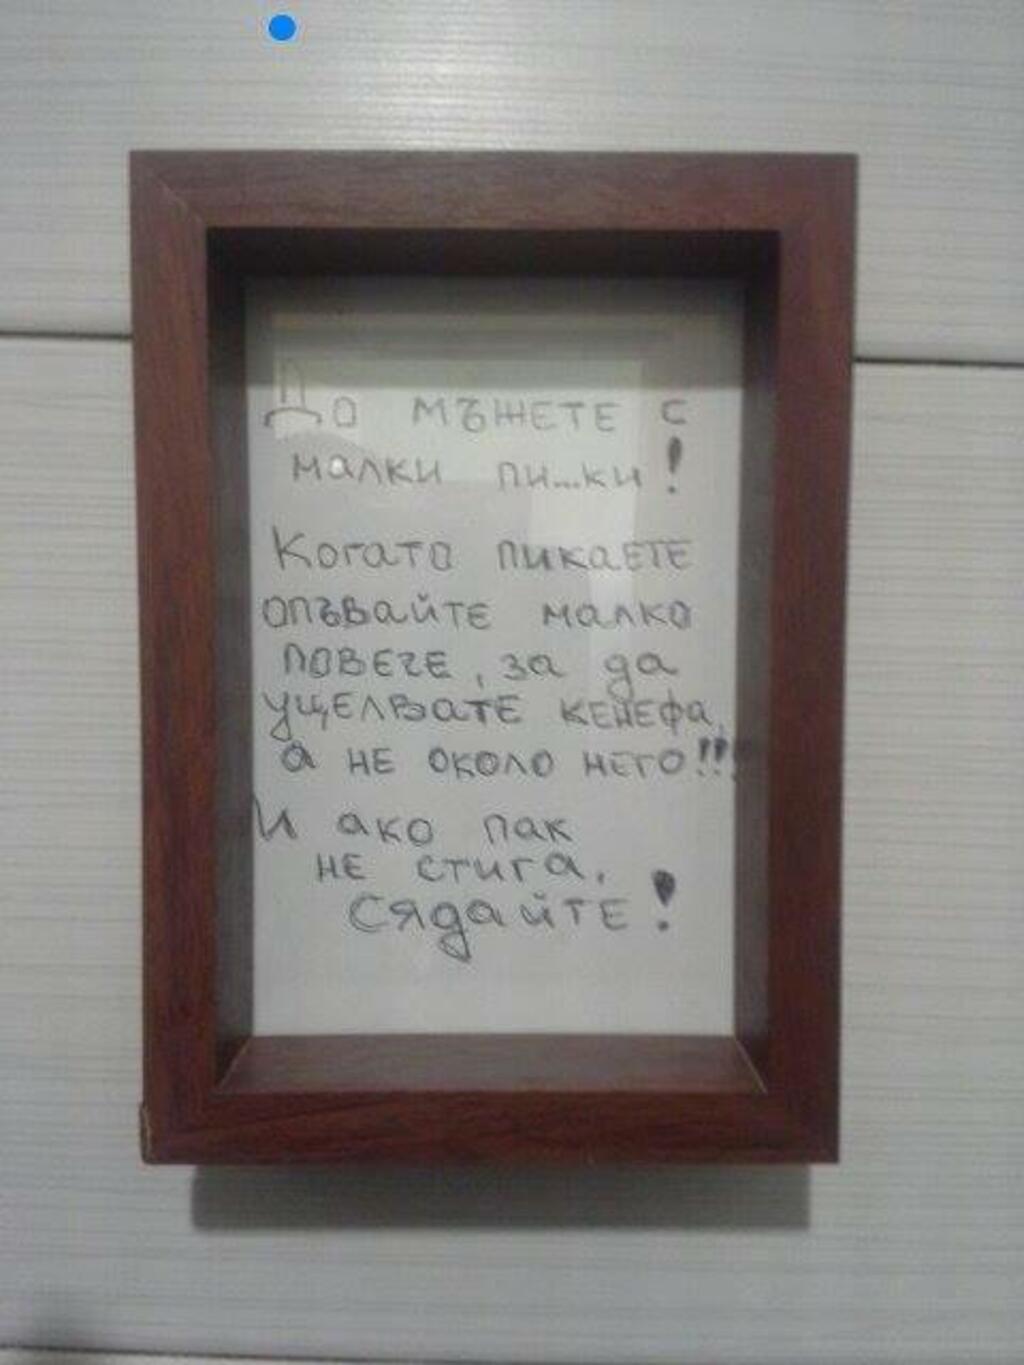 До мъжете с
малки пи...ки!
Когато пикаете
опъвайте малко
повече, за да
уцелвате кенефа,
а не около него!!!
И ако пак
не стига,
сядайте!